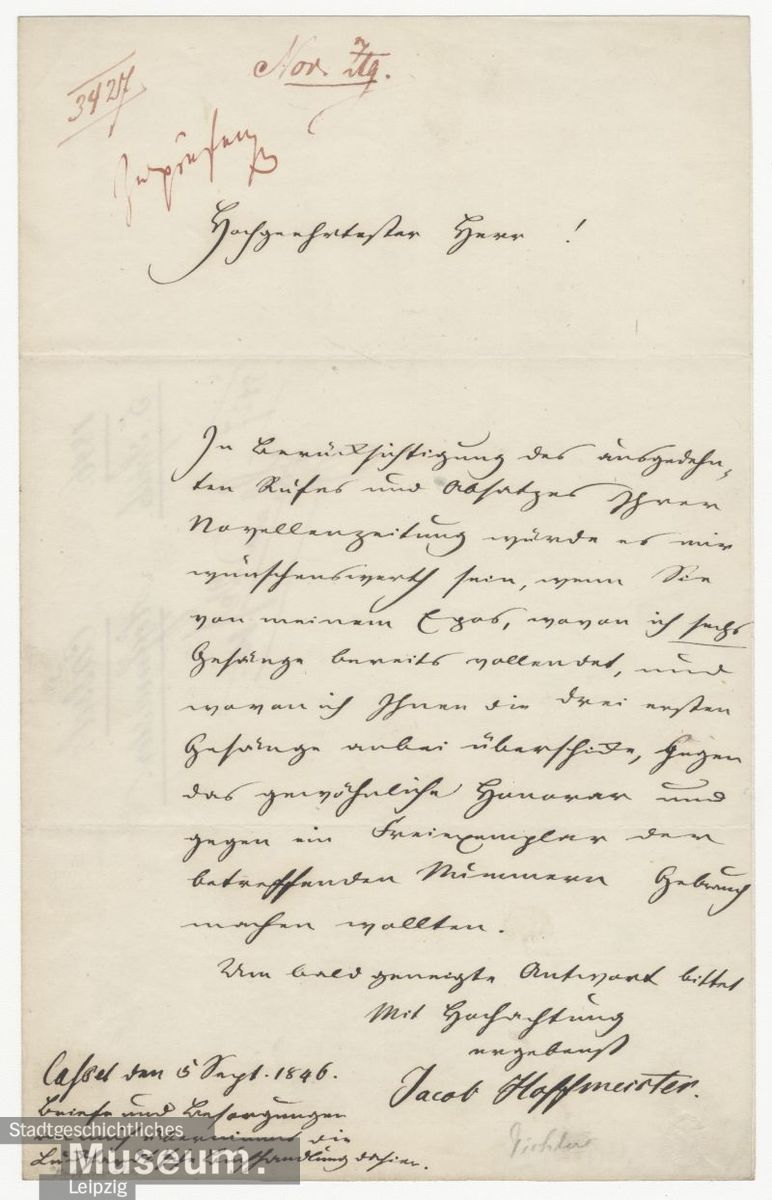 Nov. Ztg.
3427
Zu prüfen
Hochgeehrtester Herr !
In Berücksichtigung des ausgedehn-
ten Rufes und Absatzes Ihrer
Novellenzeitung würde es mir
wünschenswerth sein, wenn Sie
von meinem Epos, wovon ich sechs
Gesänge bereits vollendet, und
wovon ich Ihnen die drei ersten
Gesänge anbei überschicke, gegen
das gewöhnliche Honorar und
gegen ein Freiexemplar der
betreffenden Nummern Gebrauch
machen wollten.
Um bald geneigte Antwort bittet
Mit Hochachtung
ergebenst
Jacob Hoffmeister.
Cassel den 5 Sept. 1846.
Briefe und Besorgungen
die
dahier.
Dichter
Stadtgeschichtliches
Museum.
Leipzig